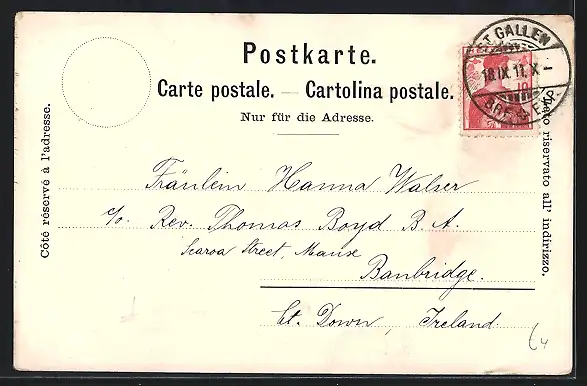 Postkarte.
Carte postale. — Cartolina postale.
Nur für die Adresse.
ST GALLEN
18.IX.11.X-
BRF. & EXP.
10
Côté réservé à l'adresse.
Lato riservato all' indirizzo.
Fräulein Hanna Walser
c/o Rev. Thomas Boyd B. A.
Scarva Street, Manse
Banbridge.
Ct. Down, Ireland.